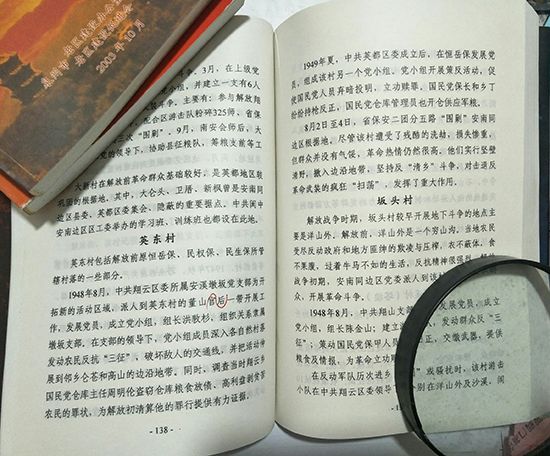 2003年10月
3月，在上级党
，并建立一支有6人
装斗争。主要有：参与解放翔
，配合区游击队筹粉325师、省保
三次“围剿”。9月，南安会师后，大
的领导下，协助县征粮队，筹粮支前等工
大新村在解放前革命群众基础较好，是英都地区装
巩固的根据地，其中，大仑头、卫厝、新枫曾是安南同
边区县委、英都区委集会、隐蔽的重要据点，中共闽中
安南边区区工委举办的学习班、训练班也都设在此地。
英东村
英东村包括解放前原恒岳保、民权保、民生保所管
辖村落的一些部分。
1948年8月，中共翔云区委所属安溪墩坂党支部为开
拓新的活动区域，派人到英东村的董山前后一带开展工
作，发展党员，成立党小组，组长洪敦杉。组织关系隶属
墩坂支部。在支部的领导下，党小组成员深入各自然村落
发动农民抗“三征”，破坏敌人的交通线，并把活动伸
展到邻乡仑苍和高山的边沿地带。同时，调查当时翔云乡
国民党仓库主任周明伦盗窃仓库粮食放债、高利盘剥贫苦
农民的罪状，为解放初清算他的罪行提供有力证据。
- 138 -
1949年夏，中共英都区委成立后，在恒岳保发展党
员，组成该村另一个党小组。党小组开展策反活动，促
使国民党人员弃暗投明，立功赎罪，国民党保长和乡丁
纷纷持枪反正，国民党仓库管理员也开仓供应军粮。
8月2日至4日，省保安二团分五路“围剿”安南同
边区根据地，尽管该村遭受了残酷的洗劫，损失惨重，
但群众并没有气馁，革命热情仍然很高。他们实行坚壁
清野，撤入边沿地带，坚持反“清乡”斗争，对击退反
革命武装的疯狂“扫荡”，发挥了重大作用。
坂头村
解放战争时期，坂头村较早开展地下斗争的地点主
要是洋山外。解放前，洋山外是一个穷山沟，当地农民
受尽反动政府和地方匪绅的欺凌与压榨，衣不蔽体，食
不果腹，过着牛马不如的生活，反抗精神很强烈。
战争初期，安南同边区党委派人到该村
，开展革命斗争。
1948年8月，中共翔山支部
党小组，组长陈金山；建立
发动群众反“三
征”；策动国民党保甲人员
正，交缴武器，提供
粮食及情报，为革命立功赎
在反动军队历次进乡
”或骚扰时，该村游击
小队在中共翔云区委领导下
别在洋山外及沙溪、闹